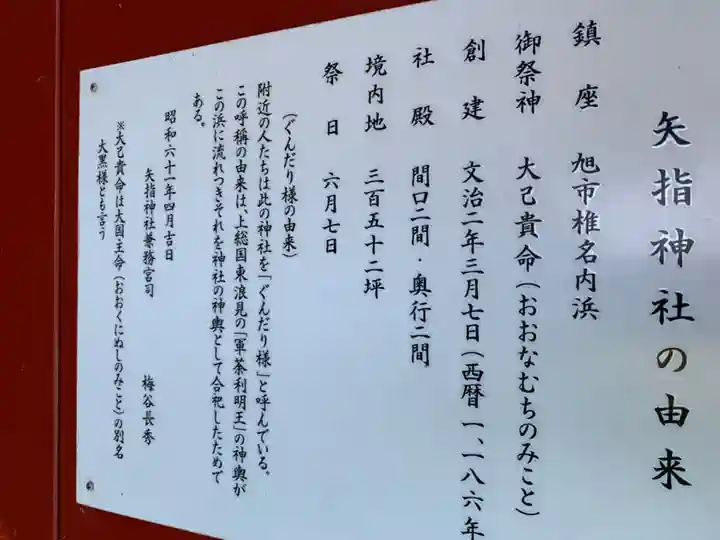 矢指神社の由来
鎮座 旭市椎名内浜
御祭神 大己貴命(おおなむちのみこと)
創建 文治二年三月七日(西暦一、一八六年
社殿 間口二間・奥行二間
境内地 三百五十二坪
祭日 六月七日
(ぐんだり様の由来)
附近の人たちは此の神社を「ぐんだり様」と呼んでいる。
この呼称の由来は、上総国東浪見の「軍荼利明王」の神輿が
この浜に流れつきそれを神社の神輿として合祀したためで
ある。
昭和六十一年四月吉日
矢指神社兼務宮司 梅谷長秀
※大己貴命は大国主命(おおくにぬしのみこと)の別名
大黒様とも言う